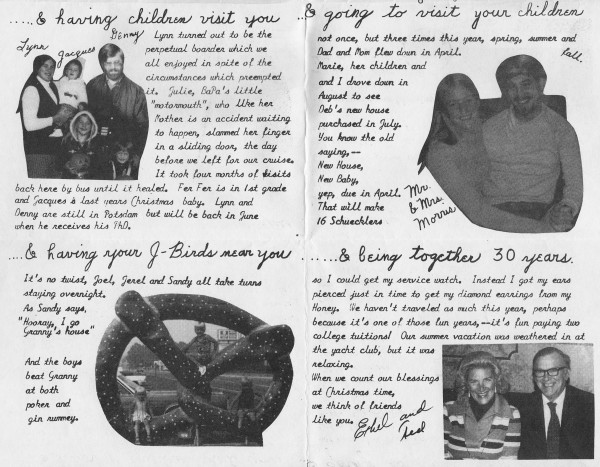 .....& having children visit you
Lynn
Jacques
Denny
Lynn turned out to be the
perpetual boarder which we
all enjoyed in spite of the
circumstances which preempted
it. Julie, BaPa's little
"motormouth", who like her
Mother is an accident waiting
to happen, slammed her finger
in a sliding door, the day
before we left for our cruise.
It took four months of visits
back here by bus until it healed. Fer Fer is in 1st grade
and Jacques is last years Christmas baby. Lynn and
Denny are still in Potsdam but will be back in June
when he receives his PhD.
...& going to visit your children
not once, but three times this year, spring, summer and
fall.
Dad and Mom flew down in April.
Marie, her children and
and I drove down in
August to see
Deb's new house
purchased in July.
You know the old
saying,--
New House,
New Baby,
yep, due in April.
That will make
16 Schuecklers
Mr.
& Mrs.
Morris
....& having your J-Birds near you
It's no twist, Joel, Jerel and Sandy all take turns
staying overnight.
As Sandy says,
"Hooray, I go
Granny's house"
And the boys
beat Granny
at both
poker and
gin rummey.
......& being together 30 years.
so I could get my service watch. Instead I got my ears
pierced just in time to get my diamond earrings from my
Honey. We haven't traveled as much this year, perhaps
because it's one of those fun years,--it's fun paying two
college tuitions! Our summer vacation was weathered in at
the yacht club, but it was
relaxing.
When we count our blessings
at Christmas time,
we think of friends
like you.
Ethel and
Ted